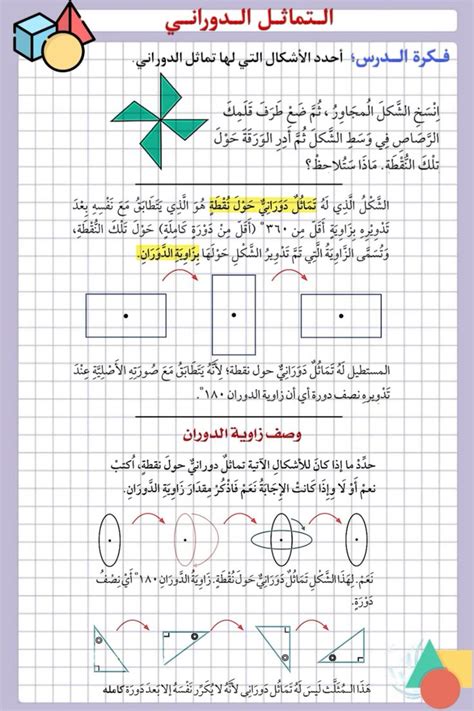 التماثل الدوراني
فكرة الدرس؛ أحدد الأشكال التي لها تماثل الدوراني.
اِنْسَخِ الشَّكلَ الْمجَاوِرُ ، ثُمَّ ضَعْ طَرَفَ قَلَمِكَ
الرَّصَاصِ فِي وَسَطِ الشَّكلِ ثُمَّ أَدِرِ الوَرَقَةَ حَوْلَ
تِلْكَ النُّقْطَةِ. مَاذَا سَتُلَاحِظُ؟
الشَّكْلُ الَّذِي لَهُ تَمَاثُلٌ دَوَرَانِيٌّ حَوْلَ نُقْطَةٍ هُوَ الَّذِي يَتَطَابَقُ مَعَ نَفْسِهِ بَعْدَ
تَدْوِيرِهِ بِزَاوِيَةٍ أَقَلَّ مِنْ ٣٦٠° (أَقَلَّ مِنْ دَوْرَةٍ كَامِلَةٍ) حَوْلَ تِلْكَ النُّقْطَةِ،
وَتُسَمَّى الزَّاوِيَةُ الَّتِي تَمَّ تَدْوِيرُ الشَّكْلِ حَوْلَهَا بِزَاوِيَةِ الدَّوَرَانِ.
المستطيل لَهُ تَمَاثُلٌ دَوَرَانِيٌّ حول نقطة؛ لِأَنَّهُ يَتَطَابَقُ مَعَ صُورَتِهِ الأَصْلِيَّةِ عِنْدَ
تَدْوِيرِهِ نصف دورة أي أن زاوية الدوران ١٨٠°.
وصف زاوية الدوران
حدِّدْ ما إذا كانَ للأشكالِ الآتيةِ تماثلٌ دورانيٌّ حولَ نقطةٍ، اُكتبْ
نعمْ أَوْ لَا وإِذَا كَانتْ الإِجابَةُ نَعَمْ فَاذْكُرْ مِقدَارَ زَاوِيَةِ الدَّوَرَانِ.
نَعَمْ. لِهَذَا الشَّكْلِ تَمَاثُلٌ دَوَرَانِيٌّ حَوْلَ نُقْطَةٍ. زَاوِيَةُ الدَّوَرَانِ ١٨٠° أَيْ نِصْفُ
دَوْرَةٍ.
هَذَا الْمُثَلَّثُ لَيْسَ لَهُ تَمَاثُل دَوَرَانِي لأَنَّهُ لا يُكَرِّر نَفْسَهُ إِلا بَعدَ دَوْرَة كامله